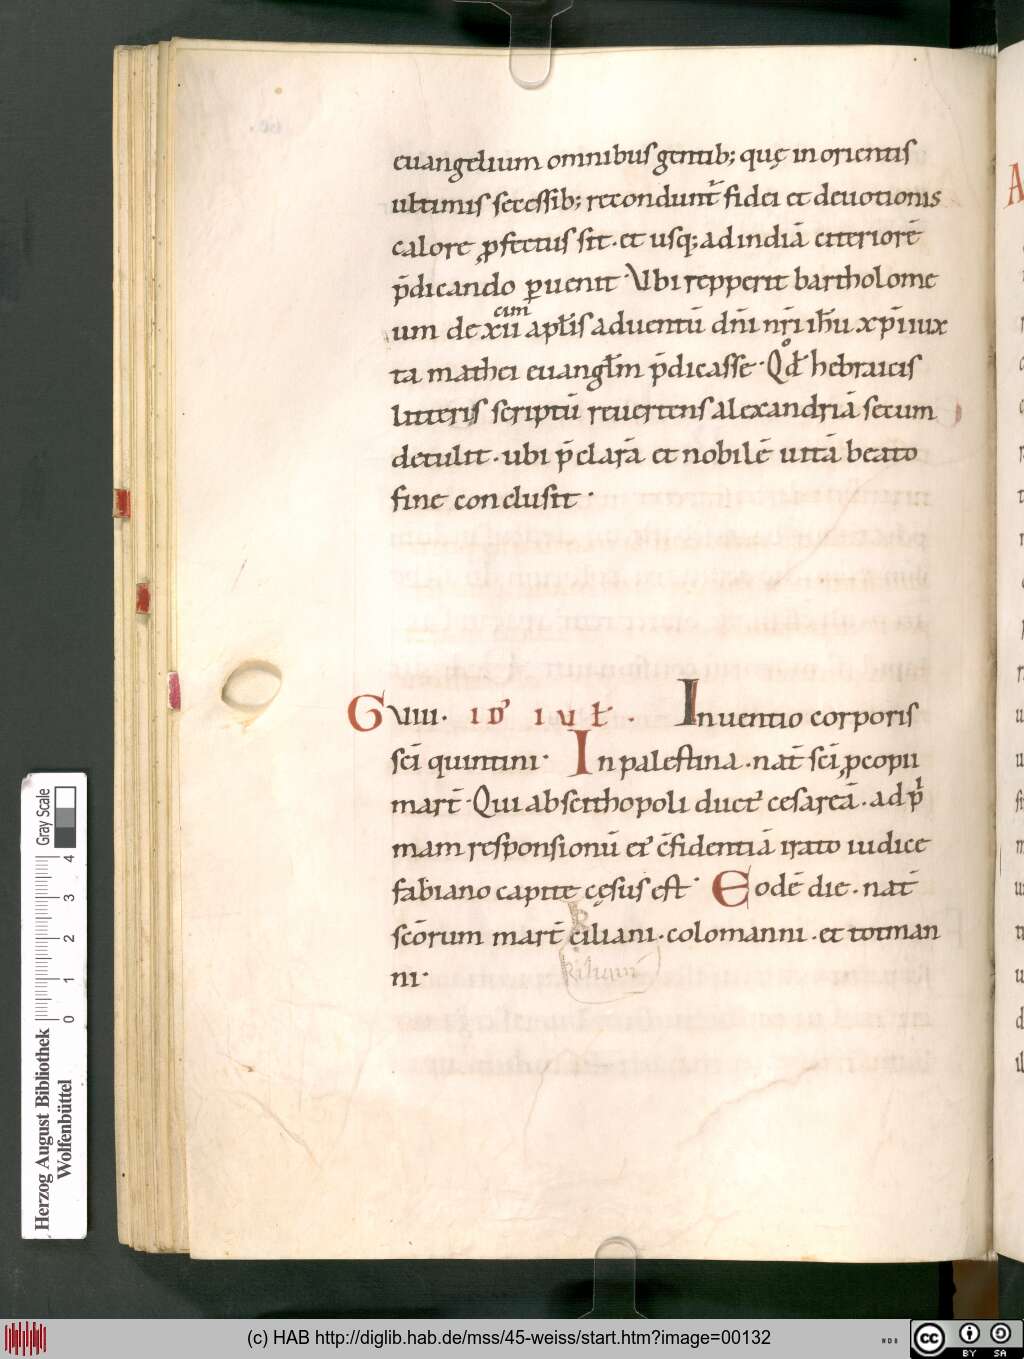 euangelium omnibus gentib; quę in orientis
ultimis secessib; recondunt̄ fidei et deuotionis
calore ꝓfectus sit · et usq; ad indiā citeriorē
p̄dicando ꝑuenit · Vbi repperit bartholome
um de xii cim apl̄is aduentū dn̄i nr̄i ih̄u xp̄i iux
ta mathei euangl̄m p̄dicasse · Qđ hebraicis
litteris scriptū reuertens alexandriā secum
detulit · ubi p̄clarā et nobilē uitā beato
fine conclusit ·
G VIII · ID' IVŁ · Inuentio corporis
sc̄i quintini · In palestina · nat̄ sc̄i ꝓcopii
mart̄ · Qui ab scithopoli duct' cesareā · ad pⁱ
mam responsionū ei' c̄fidentiā irato iudice
fabiano capite cęsus est · Eodē die · nat̄
sc̄orum mart̄ ciliani · colomanni · et totman
ni ·
Kiliani
Herzog August Bibliothek
Wolfenbüttel
0 1 2 3 4
Gray Scale
(c) HAB http://diglib.hab.de/mss/45-weiss/start.htm?image=00132
WDB
cc BY SA